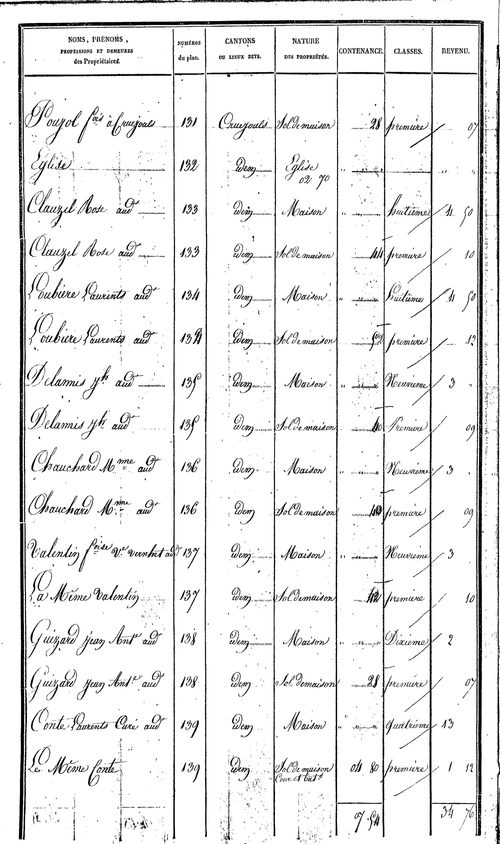 NOMS, PRÉNOMS, PROFESSIONS ET DEMEURES des Propriétaires. NUMÉROS du plan. CANTONS OU LIEUX DITS. NATURE DES PROPRIÉTÉS. CONTENANCE. CLASSES. REVENU.
Poujol fcois à Cruejouls 131 Cruejouls Sol de maison 28 première 07
Eglise 132 idem Eglise " " " "
02 70
Clauzel Rose aud 133 idem Maison " " huitième 4 50
Clauzel Rose aud 133 idem Sol de maison 44 première 10
Loubière Laurents aud 134 idem Maison " " huitième 4 50
Loubière Laurents aud 134 idem Sol de maison première 12
Delamis jh aud 135 idem Maison " " Neuvième 3 "
Delamis jh aud 135 idem Sol de maison 40 Première 09
Chauchard Mnne aud 136 idem Maison " " Neuvième 3
Chauchard Mnne aud 136 idem Sol de maison 40 première 09
Valentin fcoise Ve Vernhet aud 137 idem Maison " " Neuvième 3
La Même Valentin 137 idem Sol de maison 42 première 10
Guizard jean Ante aud 138 idem Maison " " Dixième 2
Guizard jean Ante aud 138 idem Sol de maison 28 première 07
Conte Laurents Curé aud 139 idem Maison " " quatrième 13
Le Même Conte 139 idem Sol de maison 04 80 première 1 12
Cour et bat.t
07 54 34 76